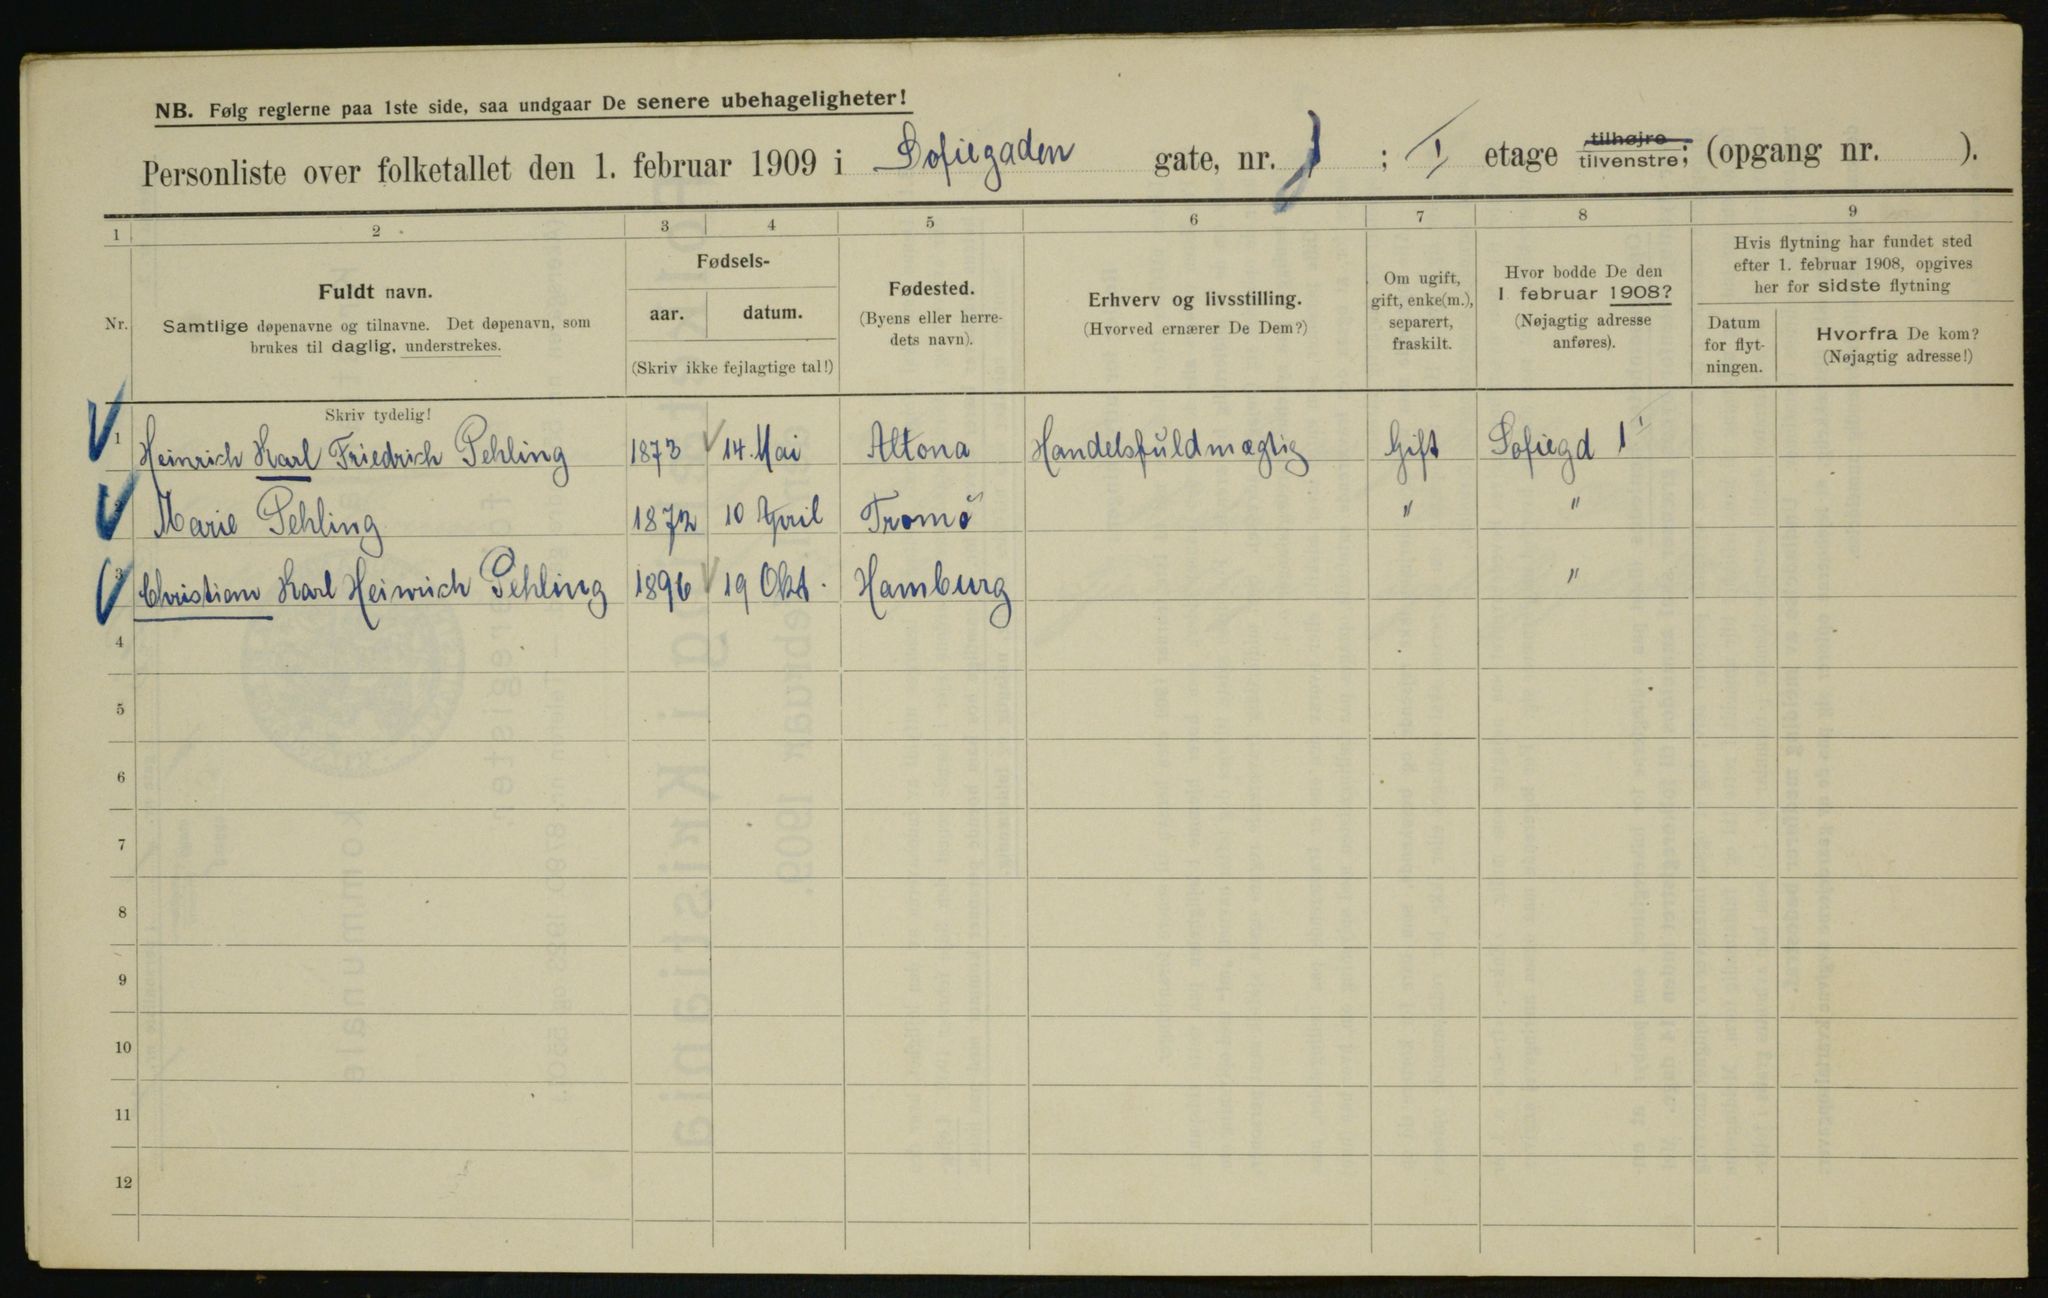 NB. Følg reglerne paa 1ste side, saa undgaar De senere ubehageligheter!
Personliste over folketallet den 1. februar 1909 i Sofiegaden gate, nr. 1 ; I etage tilhøjre tilvenstre; (opgang nr. ).
1 2 3 4 5 6 7 8 9
Nr.
Fuldt navn.
Samtlige døpenavne og tilnavne. Det døpenavn, som
brukes til daglig, understrekes.
Fødsels-
aar. datum.
(Skriv ikke fejlagtige tal!)
Fødested.
(Byens eller herre-
dets navn).
Erhverv og livsstilling.
(Hvorved ernærer De Dem?)
Om ugift,
gift, enke(m.),
separert,
fraskilt.
Hvor bodde De den
1 februar 1908?
(Nøjagtig adresse
anføres).
Hvis flytning har fundet sted
efter 1. februar 1908, opgives
her for sidste flytning
Datum
for flyt-
ningen.
Hvorfra De kom?
(Nøjagtig adresse!)
Skriv tydelig!
1 Heinrich Karl Friedrich Pehling 1873 14. Mai Altona Handelsfuldmægtig Gift Sofiegd 1 I
Marie Pehling 1872 10 April Tromö " "
3 Christian Karl Heinrich Pehling 1896 19 Okt. Hamburg "
4
5
6
7
8
9
10
11
12